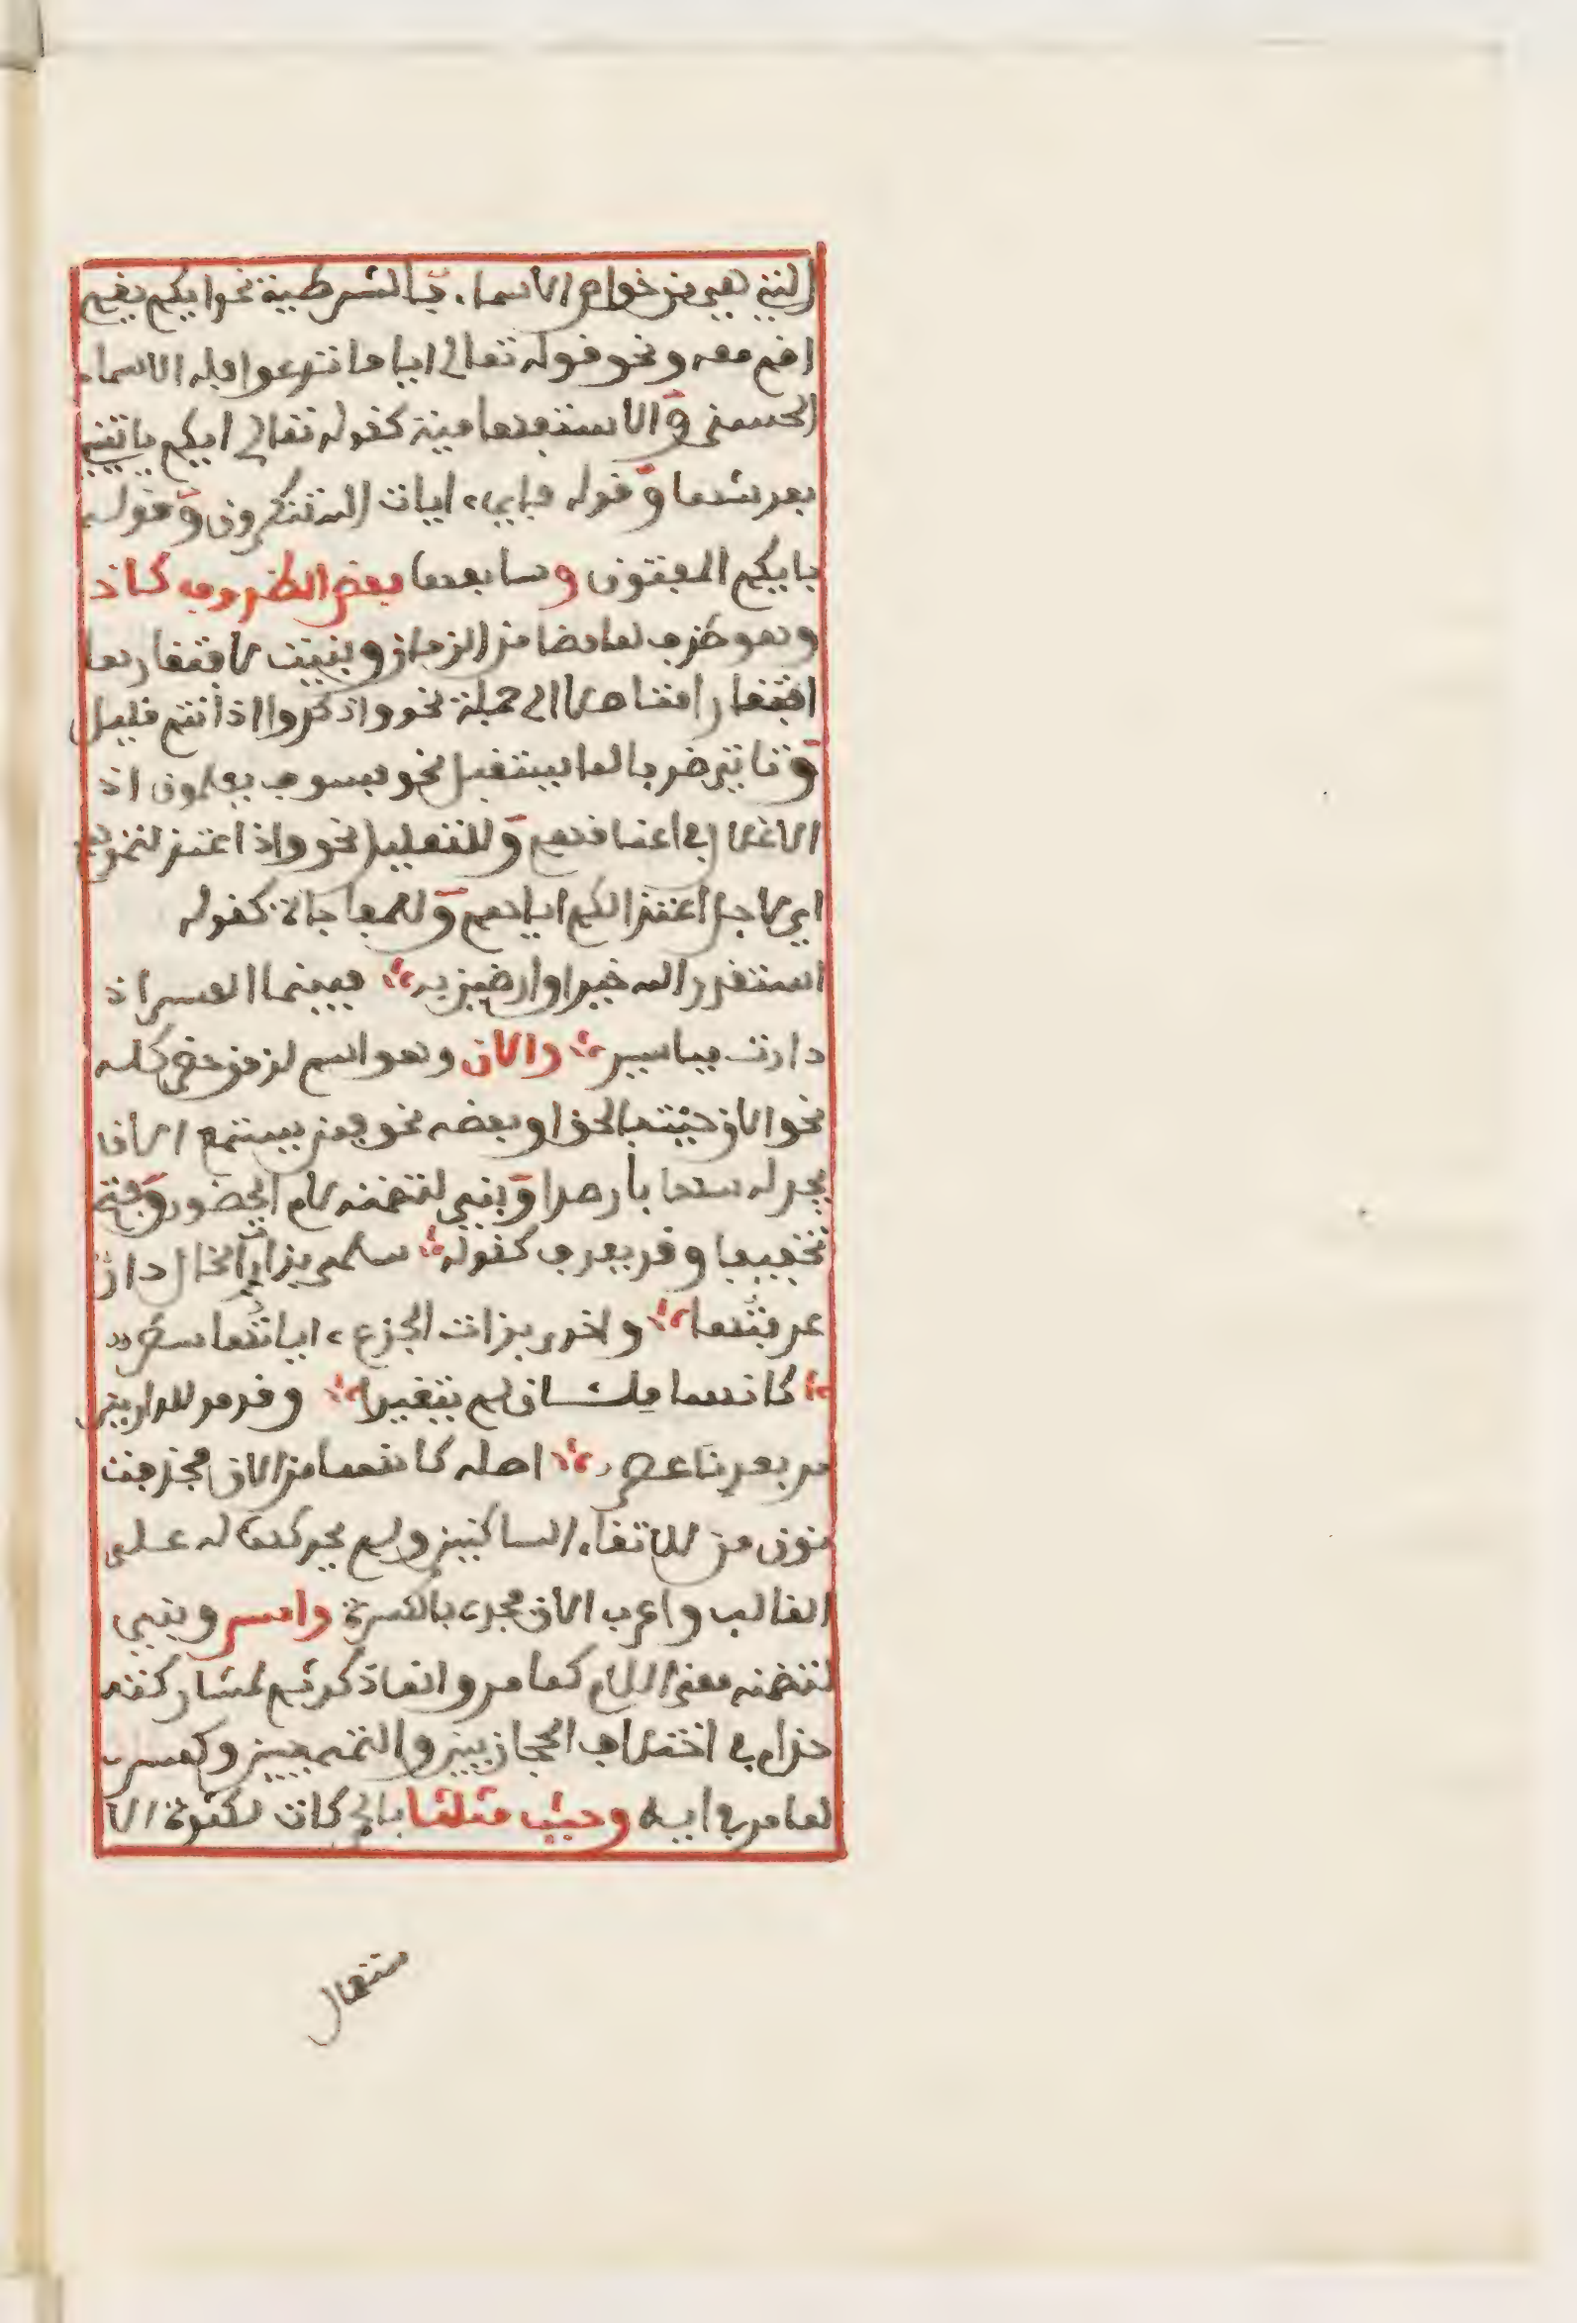 التي هي من خواص الاسماء فالشرطية نحو ايكم يقم
اقم معه ونحو قوله تعالى ايا ما تدعوا فله الاسماء
الحسنى والاستفهامية كقوله تعالى ايكم ياتيني
بعرشها وقوله فاي ايات الله تنكرون وقوله
بايكم المفتون وسابعها بعض الظروف كاذ
وهو ظرف لما مضا من الزمان وبنيت لافتقارها
افتقارا متاصلا الى جملة نحو واذكروا اذ انتم قليل
وتاتي ظرفا لما يستقبل نحو فسوف يعلمون اذ
الاغلال في اعناقهم وللتعليل نحو واذ اعتزلتموهم
اي لاجل اعتزالكم اياهم وللمفاجاة كقوله
استقدر الله خيرا وارضين به فبينما العسر اذ
دارت مياسير والان وهو اسم لزمن حضر كله
نحو الان جئت بالحق او بعضه نحو فمن يستمع الان
يجد له شهابا رصدا وبني لتضمنه لام الحضور وفتح
تخفيفا وقد يعرف كقوله سلمى بذات الخال دار
عرفتها واخرى بذات الجزع اياتها سطر
كانهما ملان لم يتغيرا وقد مر للدارين
من بعدنا عصر اصله كانهما من الان فحذفت
نون من لالتقاء الساكنين ولم يحركها له على
الغالب واعرب الان فجره بالكسرة وامس وبني
لتضمنه معنى اللام كما مر وانما ذكر ثم لمشاركته
حذام في اختلاف الحجازيين والتميميين وكسرت
لما مر في ايه وحيث مثلثا بالحركات لكثرة الا
ستعمال